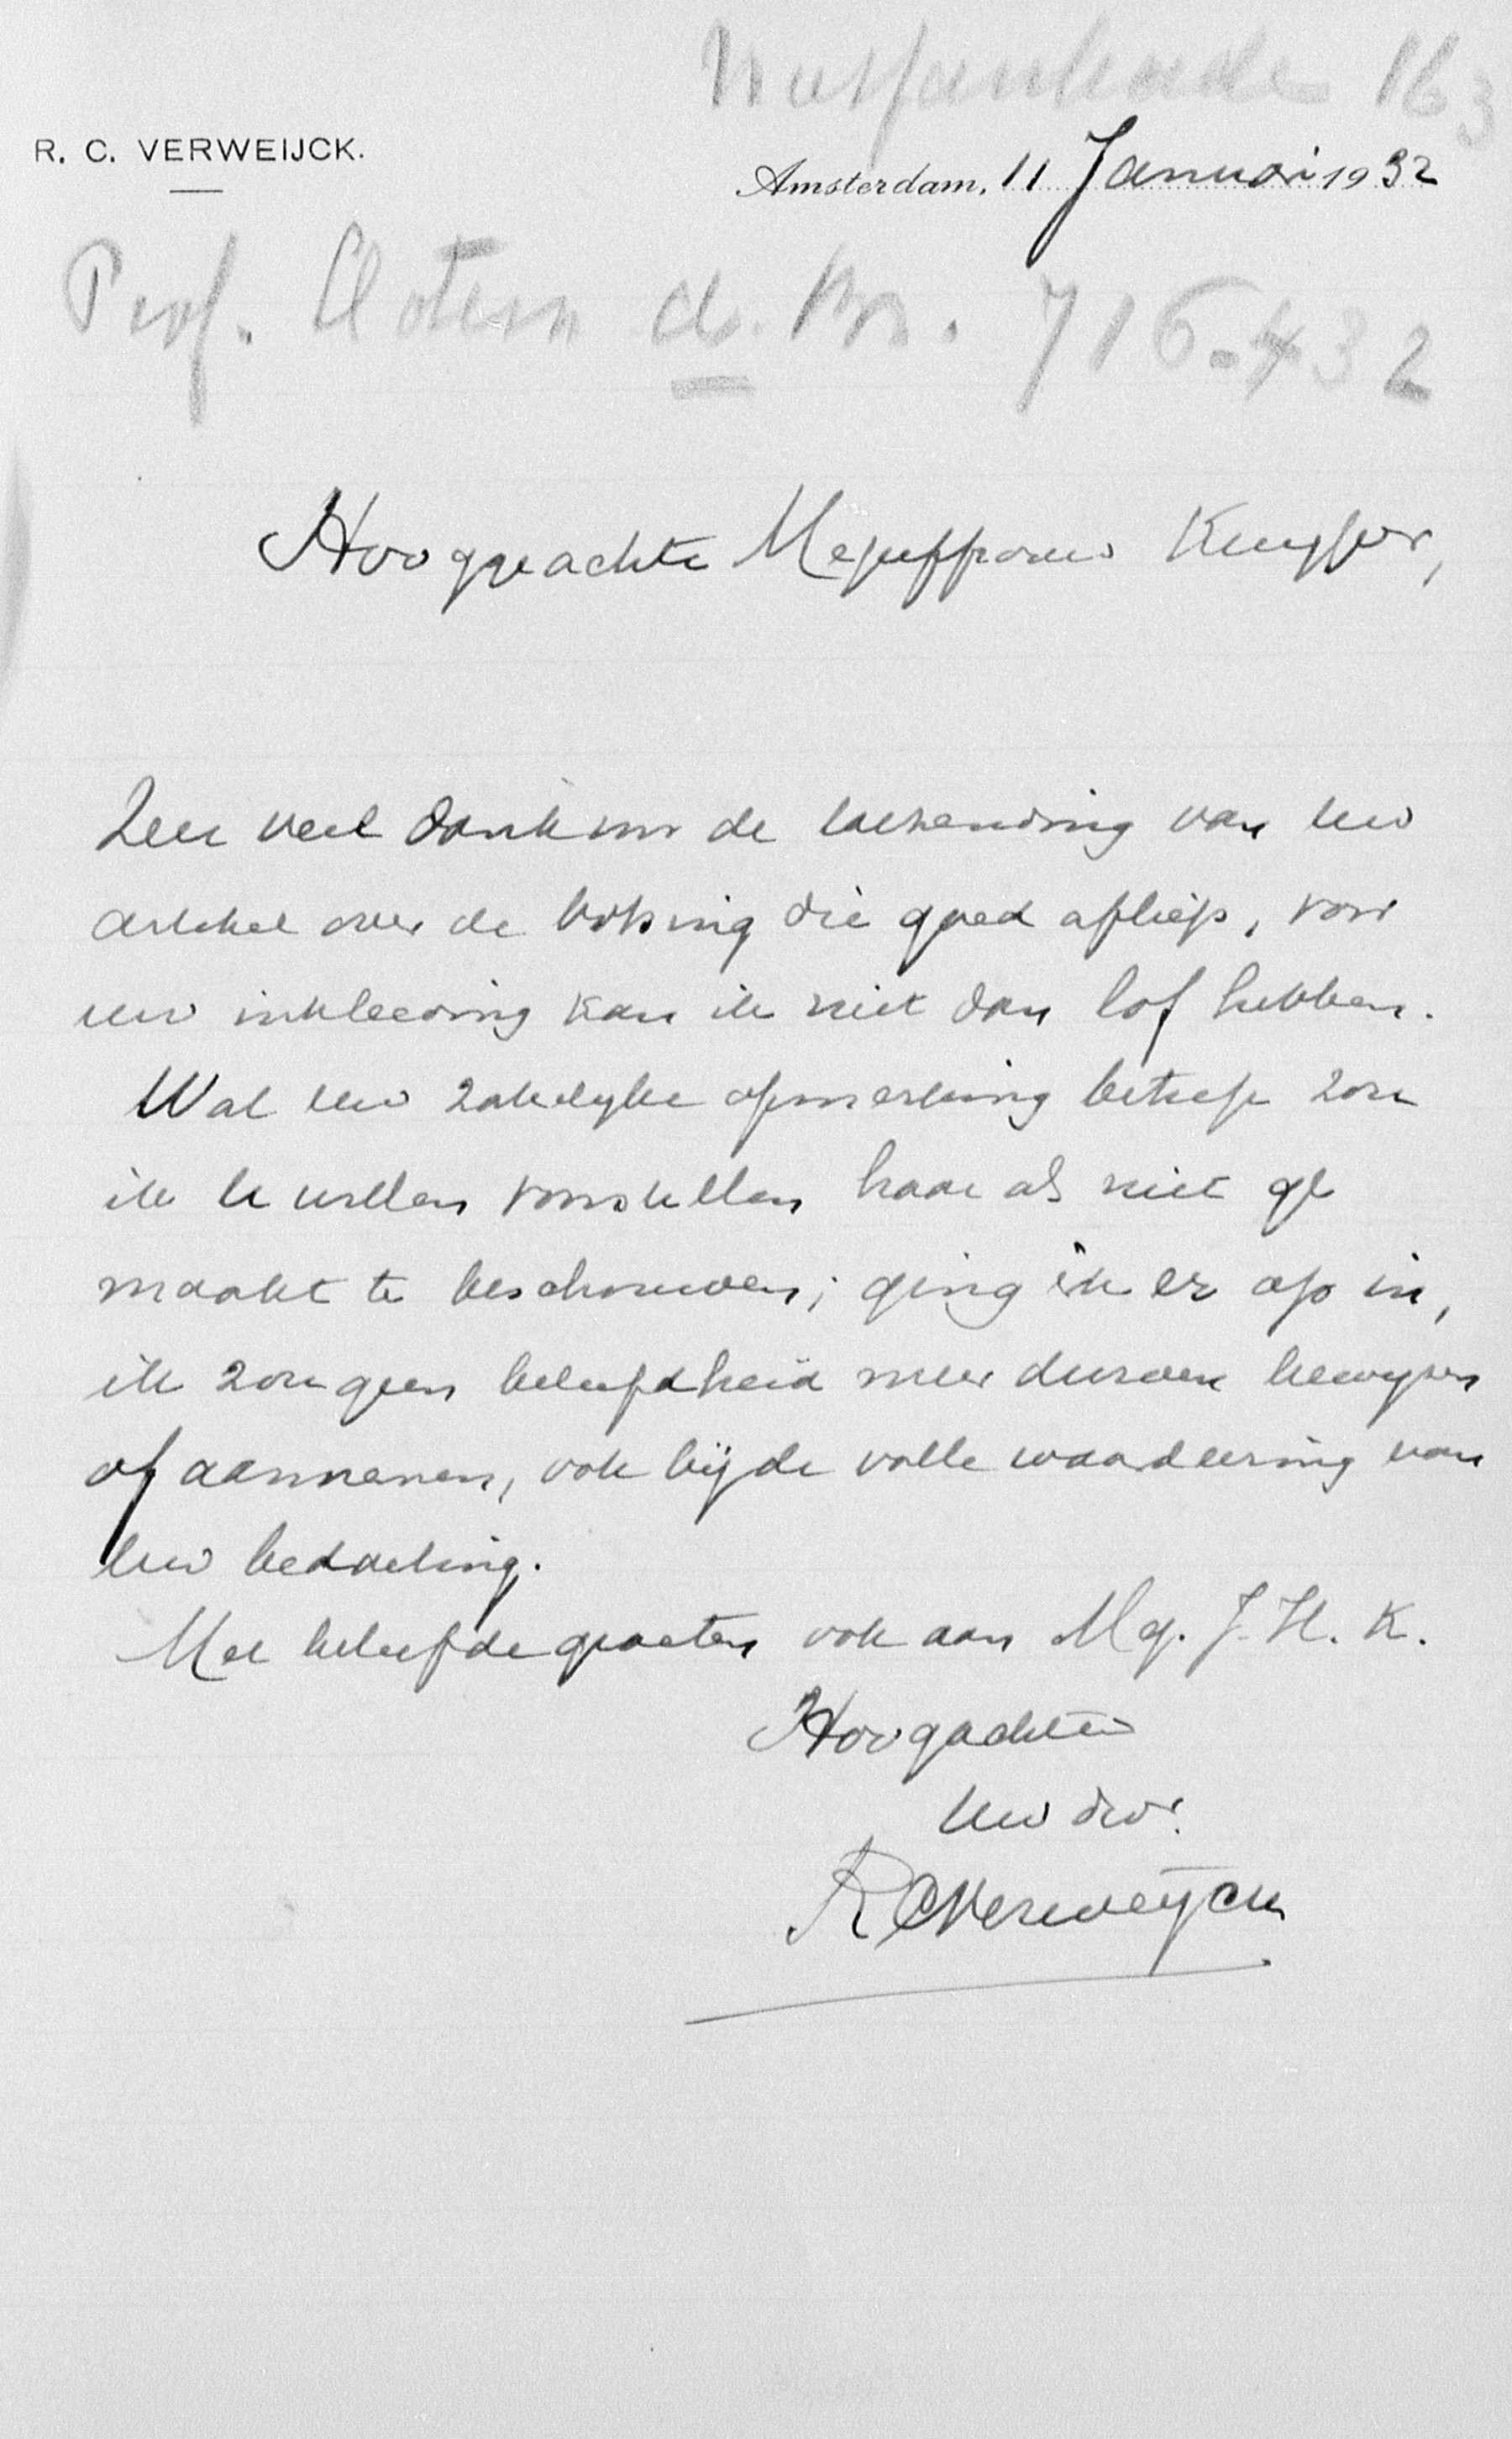 R. C. VERWEIJCK.
Amsterdam, 11 Januari 1932
Prof. d. Br. 716.432
Hooggeachte Mejuffrouw Kuyper,
Zeer veel dank voor de toezending van uw
artikel over de botsing die goed afliep, voor
uw inkleeding kan ik niet dan lof hebben.
Wat uw zakelyke opmerking betreft zou
ik u willen voorstellen haar als niet ge
maakt te beschouwen; ging ik er op in,
ik zou geen beleefdheid meer durven bewyzen
of aannemen, ook bij de volle waardeering van
uw bedoeling.
Met beleefde groeten ook aan Mej. J. H. K.
Hoogachtend
Uw dw.
RCVerweijck